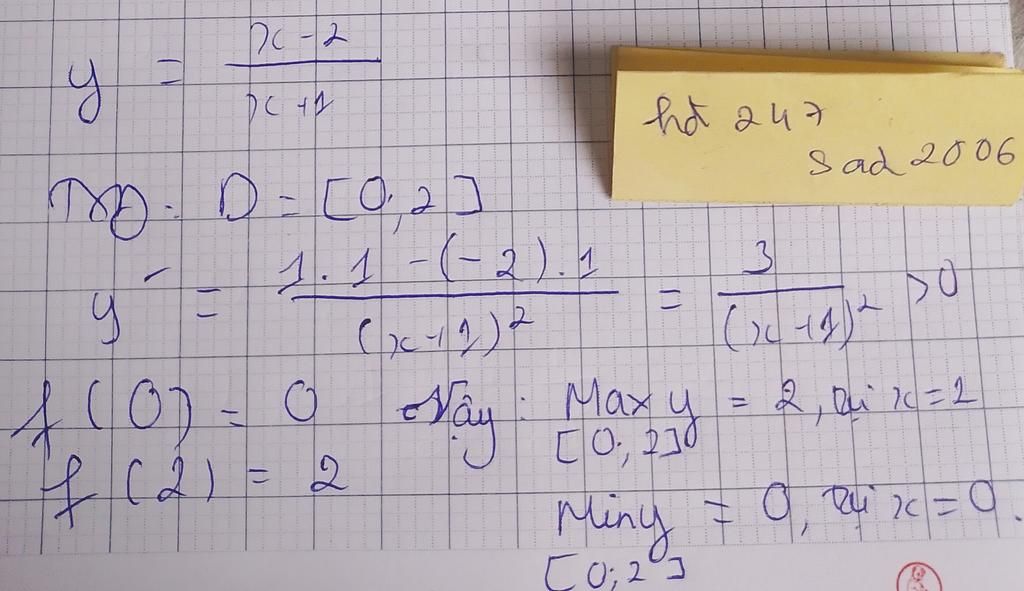 y = x-2 / x+1
hđ 247
sad 2006
TXĐ: D = [0; 2]
y' = 1.1 -(-2).1 / (x+1)² = 3 / (x+1)² > 0
f(0) = 0 Vậy: Max y = 2, tại x = 2
[0; 2]
f(2) = 2
Min y = 0, tại x = 0.
[0; 2]